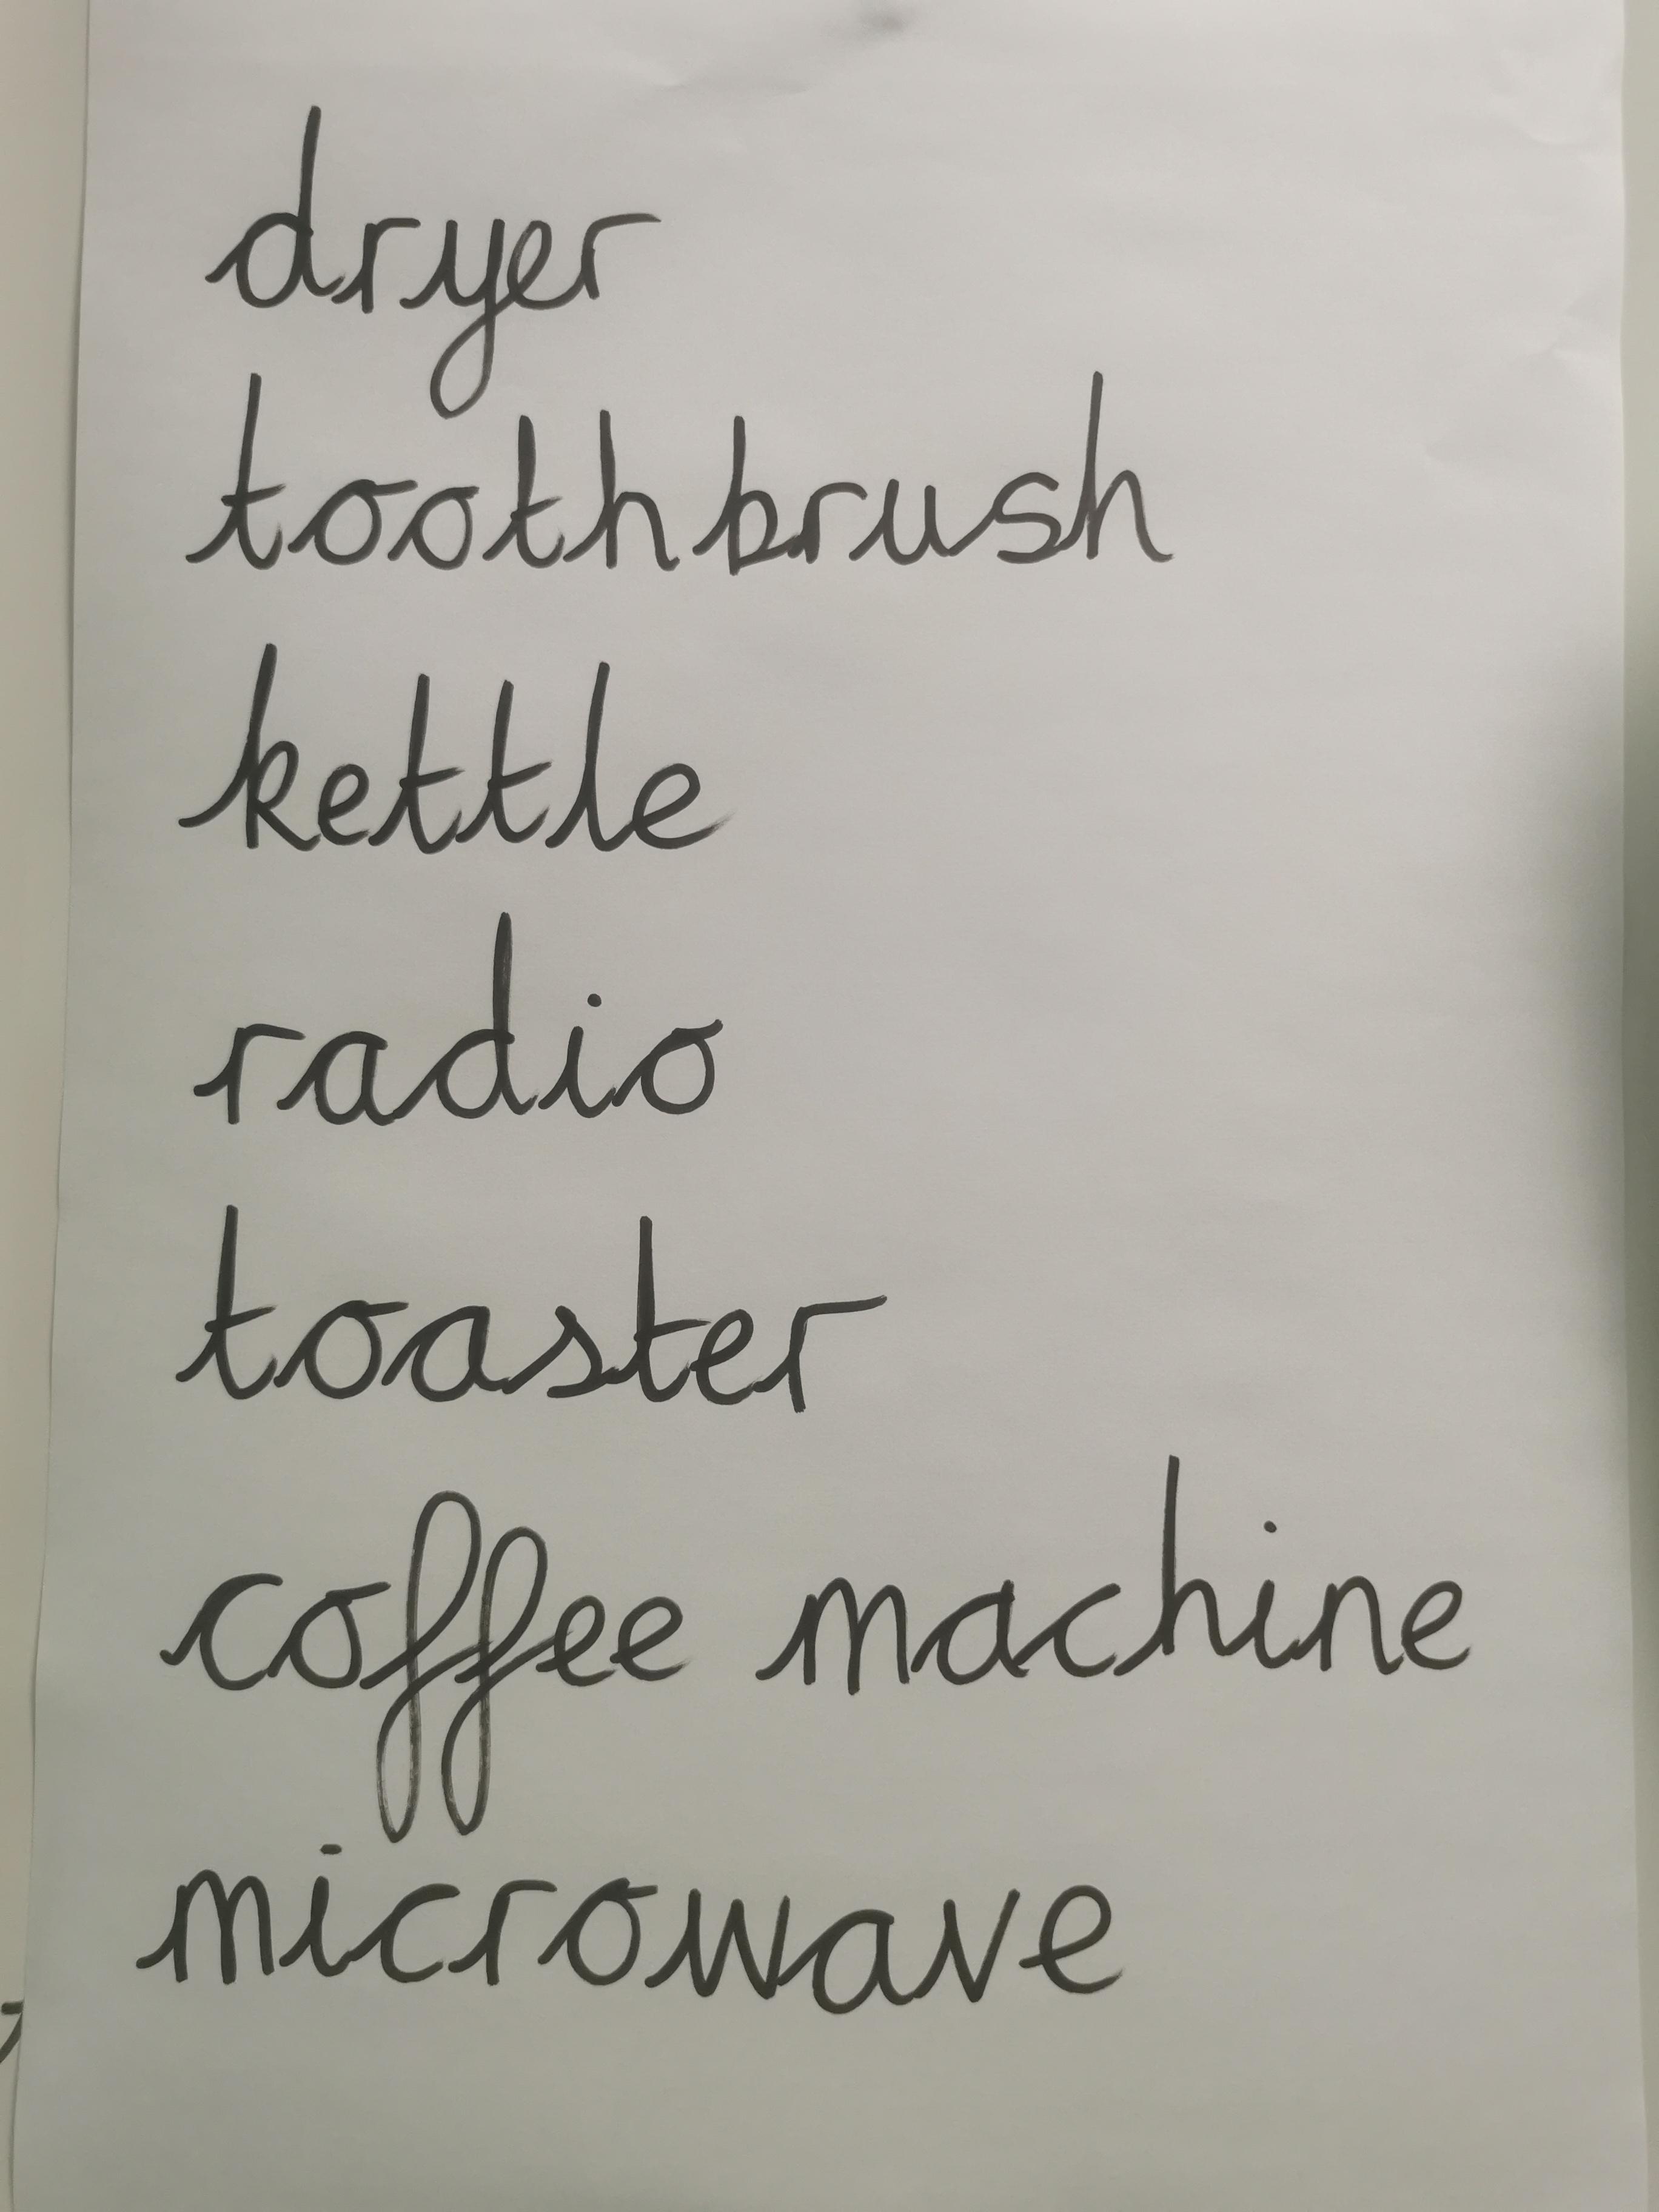 dryer
toothbrush
kettle
radio
toaster
coffee machine
microwave